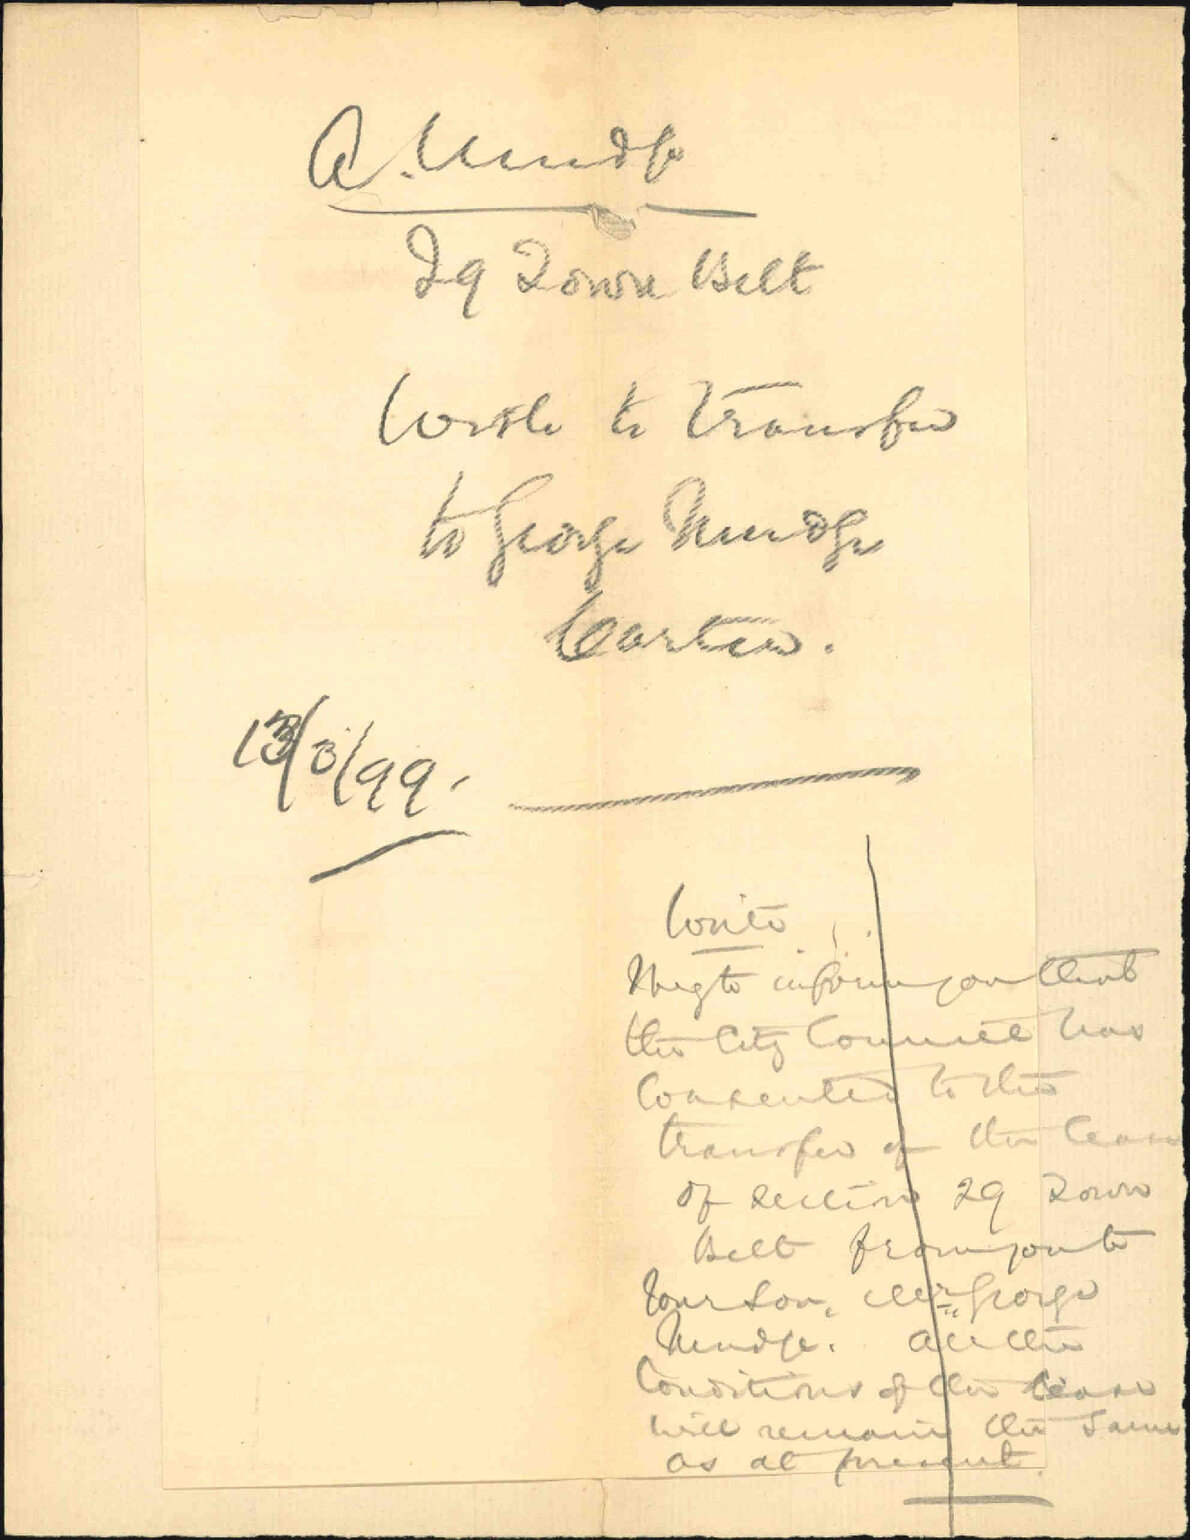 A. Mudge
29 Town Belt
Wish to Transfer
to George Mudge
Carter.
13/3/99.
Write
I beg to inform you that
the City Council has
Consented to the
transfer of the lease
of section 29 Town
Belt from you to
Your Son, Mr George
Mudge. All the
Conditions of the lease
will remain the same
as at present.